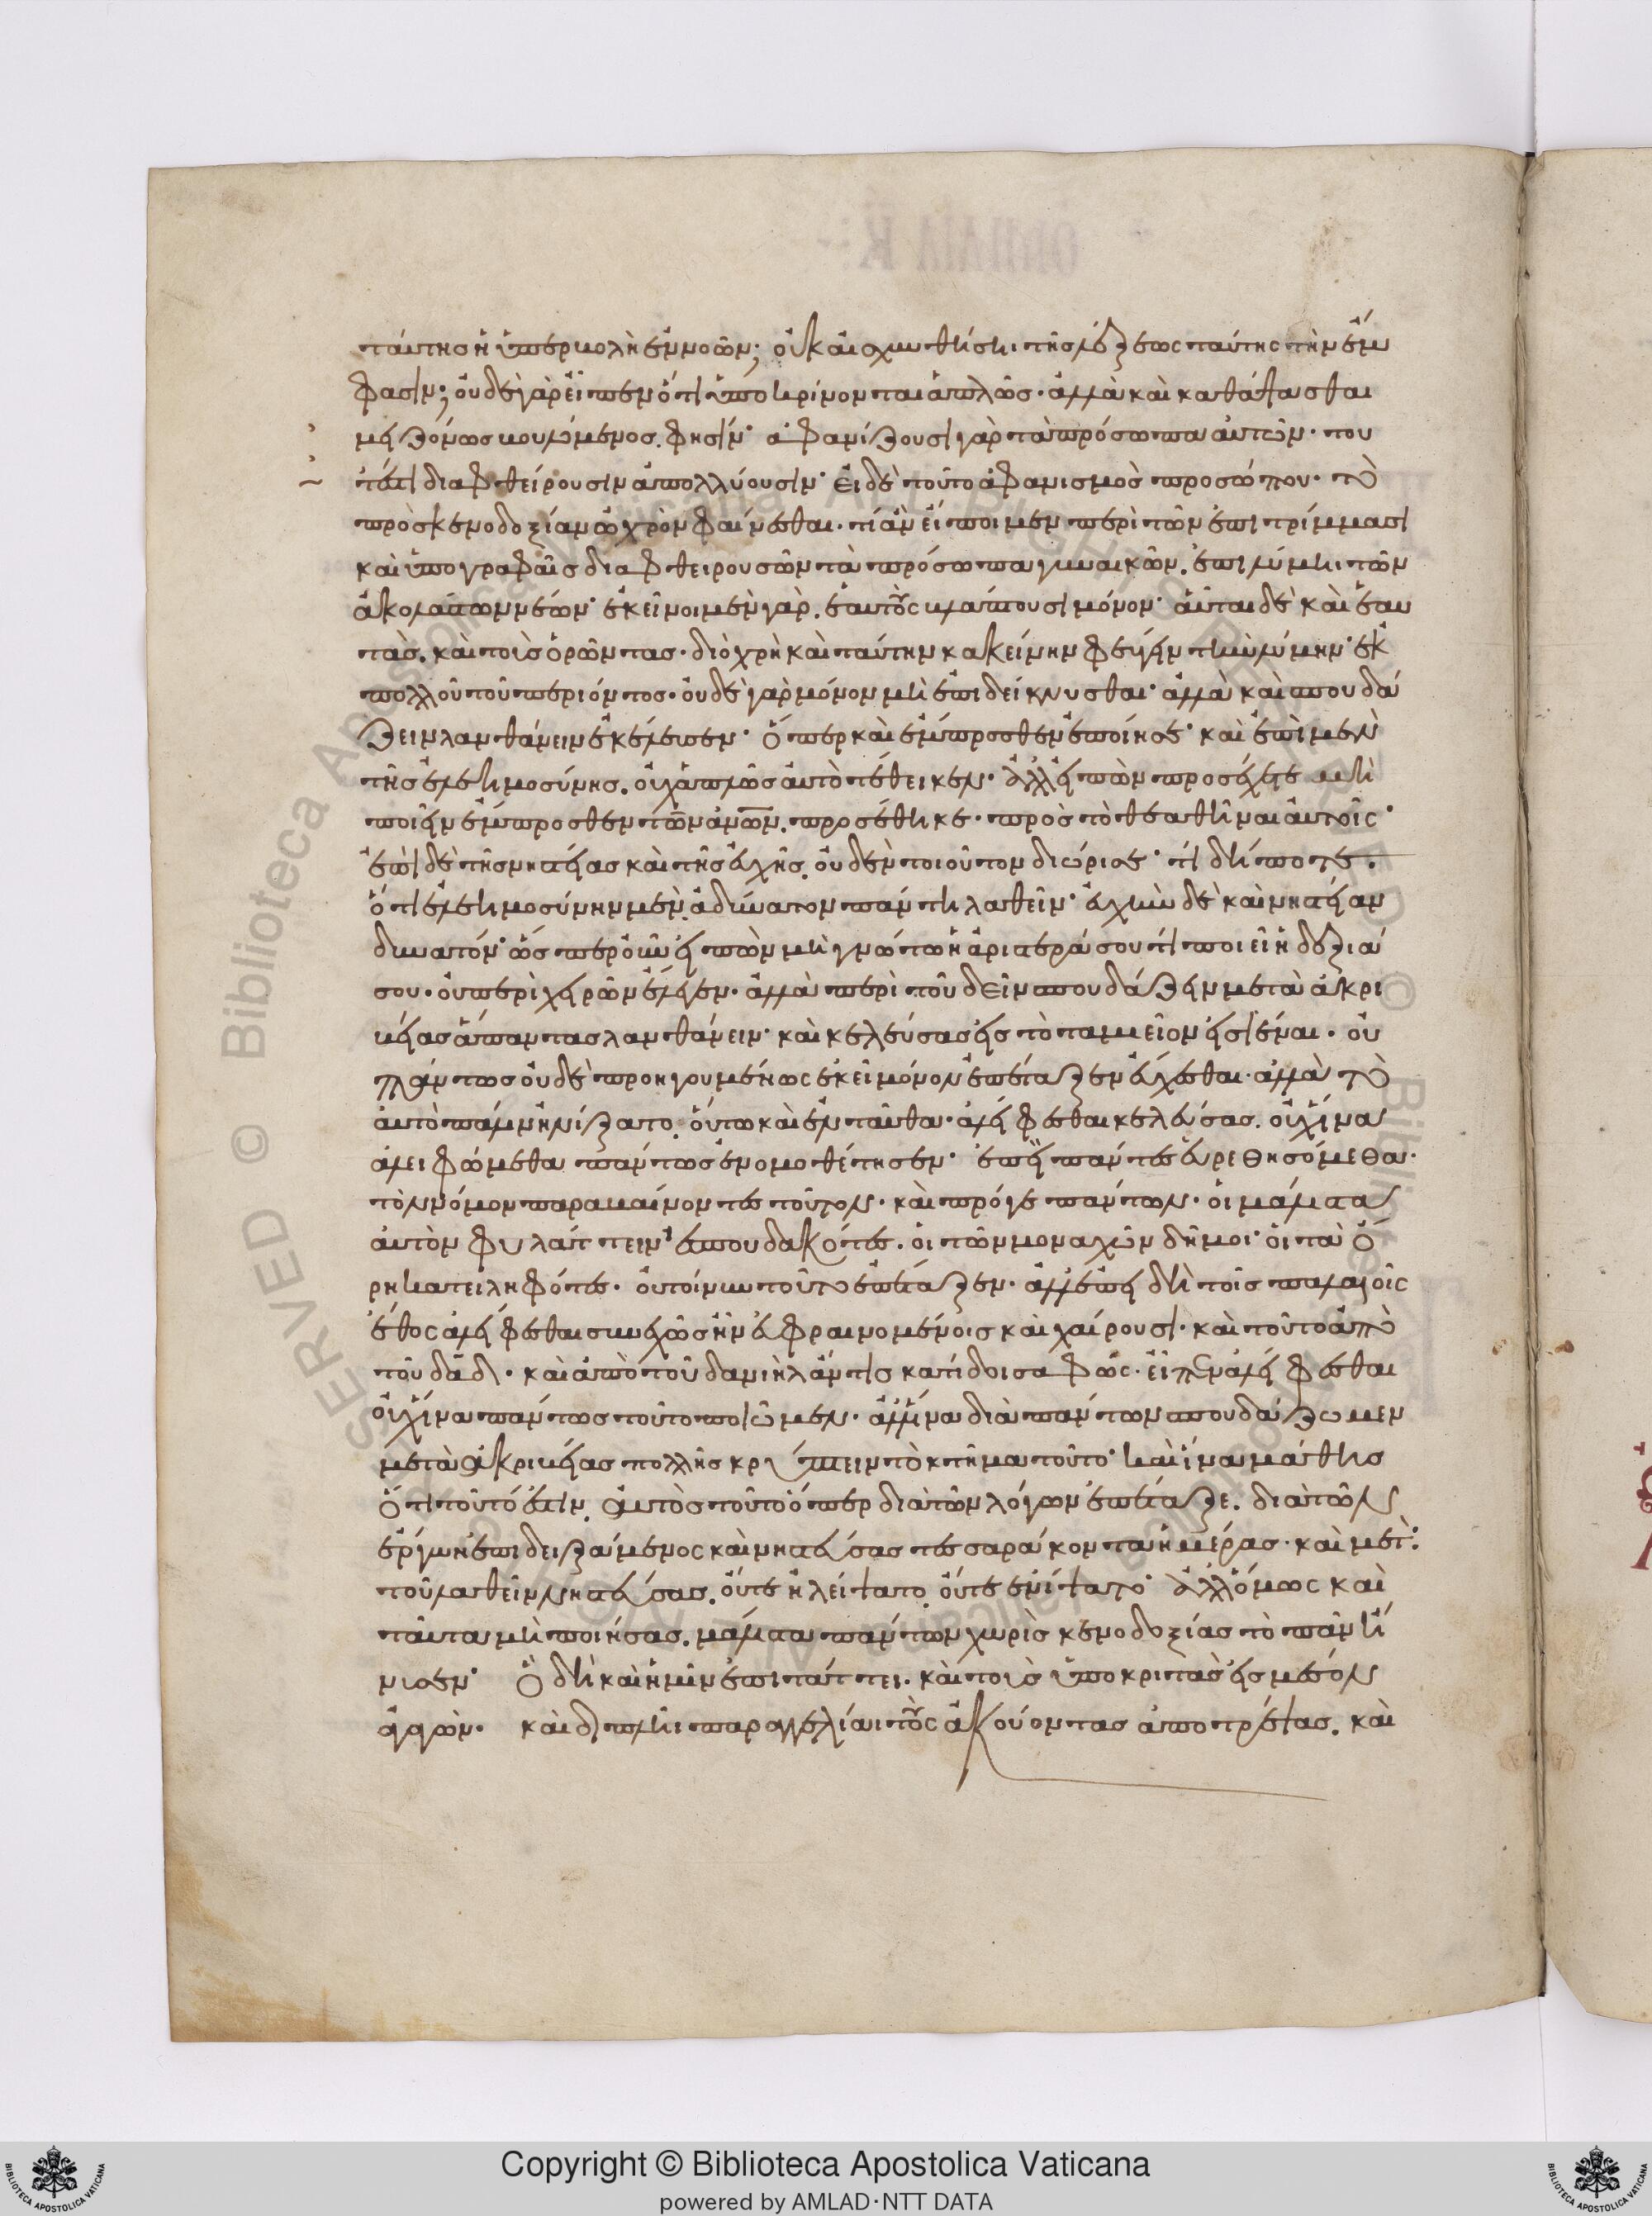 ταύτης ἡ ὑπερβολὴ ἐννοῶν; οὐκ αἰσχυνθήσῃ τῆς λέξεως ταύτης τὴν ἔμ
φασιν; οὐδὲ γὰρ εἶπεν ὅτι ὑποκρίνονται ἁπλῶς· ἀλλὰ καὶ καθάψασθαι
μειζόνως βουλόμενος. φησίν· ἀφανίζουσι γὰρ τὰ πρόσωπα αὐτῶν· του
τέστι διαφθείρουσιν ἀπολλύουσιν· εἰ δὲ τοῦτο ἀφανισμὸς προσώπου· τὸ
πρὸς κενοδοξίαν ὠχρὸν φαίνεσθαι· τί ἂν εἴποιμεν περὶ τῶν ἐπιτρίμμασι
καὶ ὑπογραφαῖς διαφθειρουσῶν τὰ πρόσωπα γυναικῶν. ἐπὶ λύμῃ τῶν
ἀκολάστων νέων· ἐκεῖνοι μὲν γὰρ. ἑαυτοὺς βλάπτουσι μόνον· αὗται δὲ καὶ ἑαυ
τὰς. καὶ τοὺς ὁρῶντας· διὸ χρὴ καὶ ταύτην κακείνην φεύγειν τὴν λύμην· ἐκ
πολλοῦ τοῦ περιόντος· οὐδὲ γὰρ μόνον μὴ ἐπιδείκνυσθαι· ἀλλὰ καὶ σπουδά
ζειν λανθάνειν ἐκέλευσεν· ὅπερ καὶ ἔμπροσθεν ἐποίησε· καὶ ἐπὶ μὲν
τῆς ἐλεημοσύνης. οὐχ ἁπλῶς αὐτὸ τέθεικεν· ἀλλ' εἰπὼν προσέχετε μὴ
ποιεῖν ἔμπροσθεν τῶν ἀνων. προσέθηκε· πρὸς τὸ θεαθῆναι αὐτοῖς·
ἐπὶ δὲ τῆς νηστείας καὶ τῆς εὐχῆς. οὐδὲν τοιοῦτον διώρισε· τί δήποτε.
ὅτι ἐλεημοσύνην μὲν. ἀδύνατον πάντη λαθεῖν· εὐχὴν δὲ καὶ νηστείαν
δυνατόν· ὥσπερ οὖν εἰπὼν μὴ γνώτω ἡ ἀριστερά σου τί ποιεῖ ἡ δεξιά
σου· οὐ περὶ χειρῶν ἔλεγεν· ἀλλὰ περὶ τοῦ δεῖν σπουδάζειν μετὰ ἀκρι
βείας ἅπαντας λανθάνειν· καὶ κελεύσας εἰς τὸ ταμεῖον εἰσιέναι· οὐ
πάντως οὐδὲ προηγουμένως ἐκεῖ μόνον ἐπέταξεν εὔχεσθαι· ἀλλὰ τὸ
αὐτὸ πάλιν ᾐνίξατο. οὕτω καὶ ἐνταῦθα· ἀλείφεσθαι κελεύσας. οὐχ ἵνα
ἀλειφώμεθα πάντως ἐνομοθέτησεν· ἐπεὶ πάντες εὑρεθησόμεθα·
τὸν νόμον παραβαίνοντες τοῦτον· καὶ πρό γε πάντων· οἱ μάλιστα
αὐτὸν φυλάττειν ἐσπουδακότες. οἱ τῶν μοναχῶν δῆμοι· οἱ τὰ ὄ
ρη κατειληφότες· οὐ τοίνυν τοῦτο ἐπέταξεν· ἀλλ' ἐπεὶ δὴ τοῖς παλαιοῖς
ἔθος ἀλείφεσθαι συνεχῶς ἦν εὐφραινομένοις καὶ χαίρουσι· καὶ τοῦτο ἀπὸ
τοῦ δαδ· καὶ ἀπὸ τοῦ δανιὴλ ἄν τις κατίδοι σαφῶς· εἶπεν ἀλείφεσθαι
οὐχ ἵνα πάντως τοῦτο ποιῶμεν· ἀλλ' ἵνα διὰ πάντων σπουδάζωμεν
μετὰ ἀκριβείας πολλῆς κρύπτειν τὸ κτῆμα τοῦτο· καὶ ἵνα μάθης
ὅτι τοῦτό ἐστιν. αὐτὸς τοῦτο ὅπερ διὰ τῶν λόγων ἐπέταξε. διὰ τῶν
ἔργων ἐπιδειξάμενος καὶ νηστεύσας τεσσαράκοντα ἡμέρας· καὶ μετὰ
τοῦ λαθεῖν νηστεύσας. οὔτε ἠλείψατο. οὔτε ἐνίψατο· ἀλλ' ὅμως καὶ
ταῦτα μὴ ποιήσας. μάλιστα πάντων χωρὶς κενοδοξίας τὸ πᾶν ἤ
νυσεν· ὃ δὴ καὶ ἡμῖν ἐπιτάττει. καὶ τοὺς ὑποκριτὰς εἰς μέσον
ἀγαγὼν· καὶ διπλῆι παραγγελίαι τοὺς ἀκούοντας ἀποτρέψας. καὶ
Copyright © Biblioteca Apostolica Vaticana
powered by AMLAD·NTT DATA